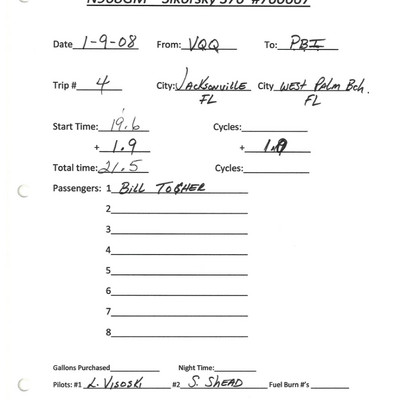 Date 1-9-08 From: VQQ To: PBI
Trip # 4 City: Jacksonville FL City West Palm Bch. FL
Start Time: 19.6 Cycles:
+ 1.9 + 1.9
Total time: 21.5 Cycles:
Passengers: 1 Bill
2
3
4
5
6
7
8
Gallons Purchased Night Time:
Pilots: #1 L. Visoski #2 S. Shead Fuel Burn #'s